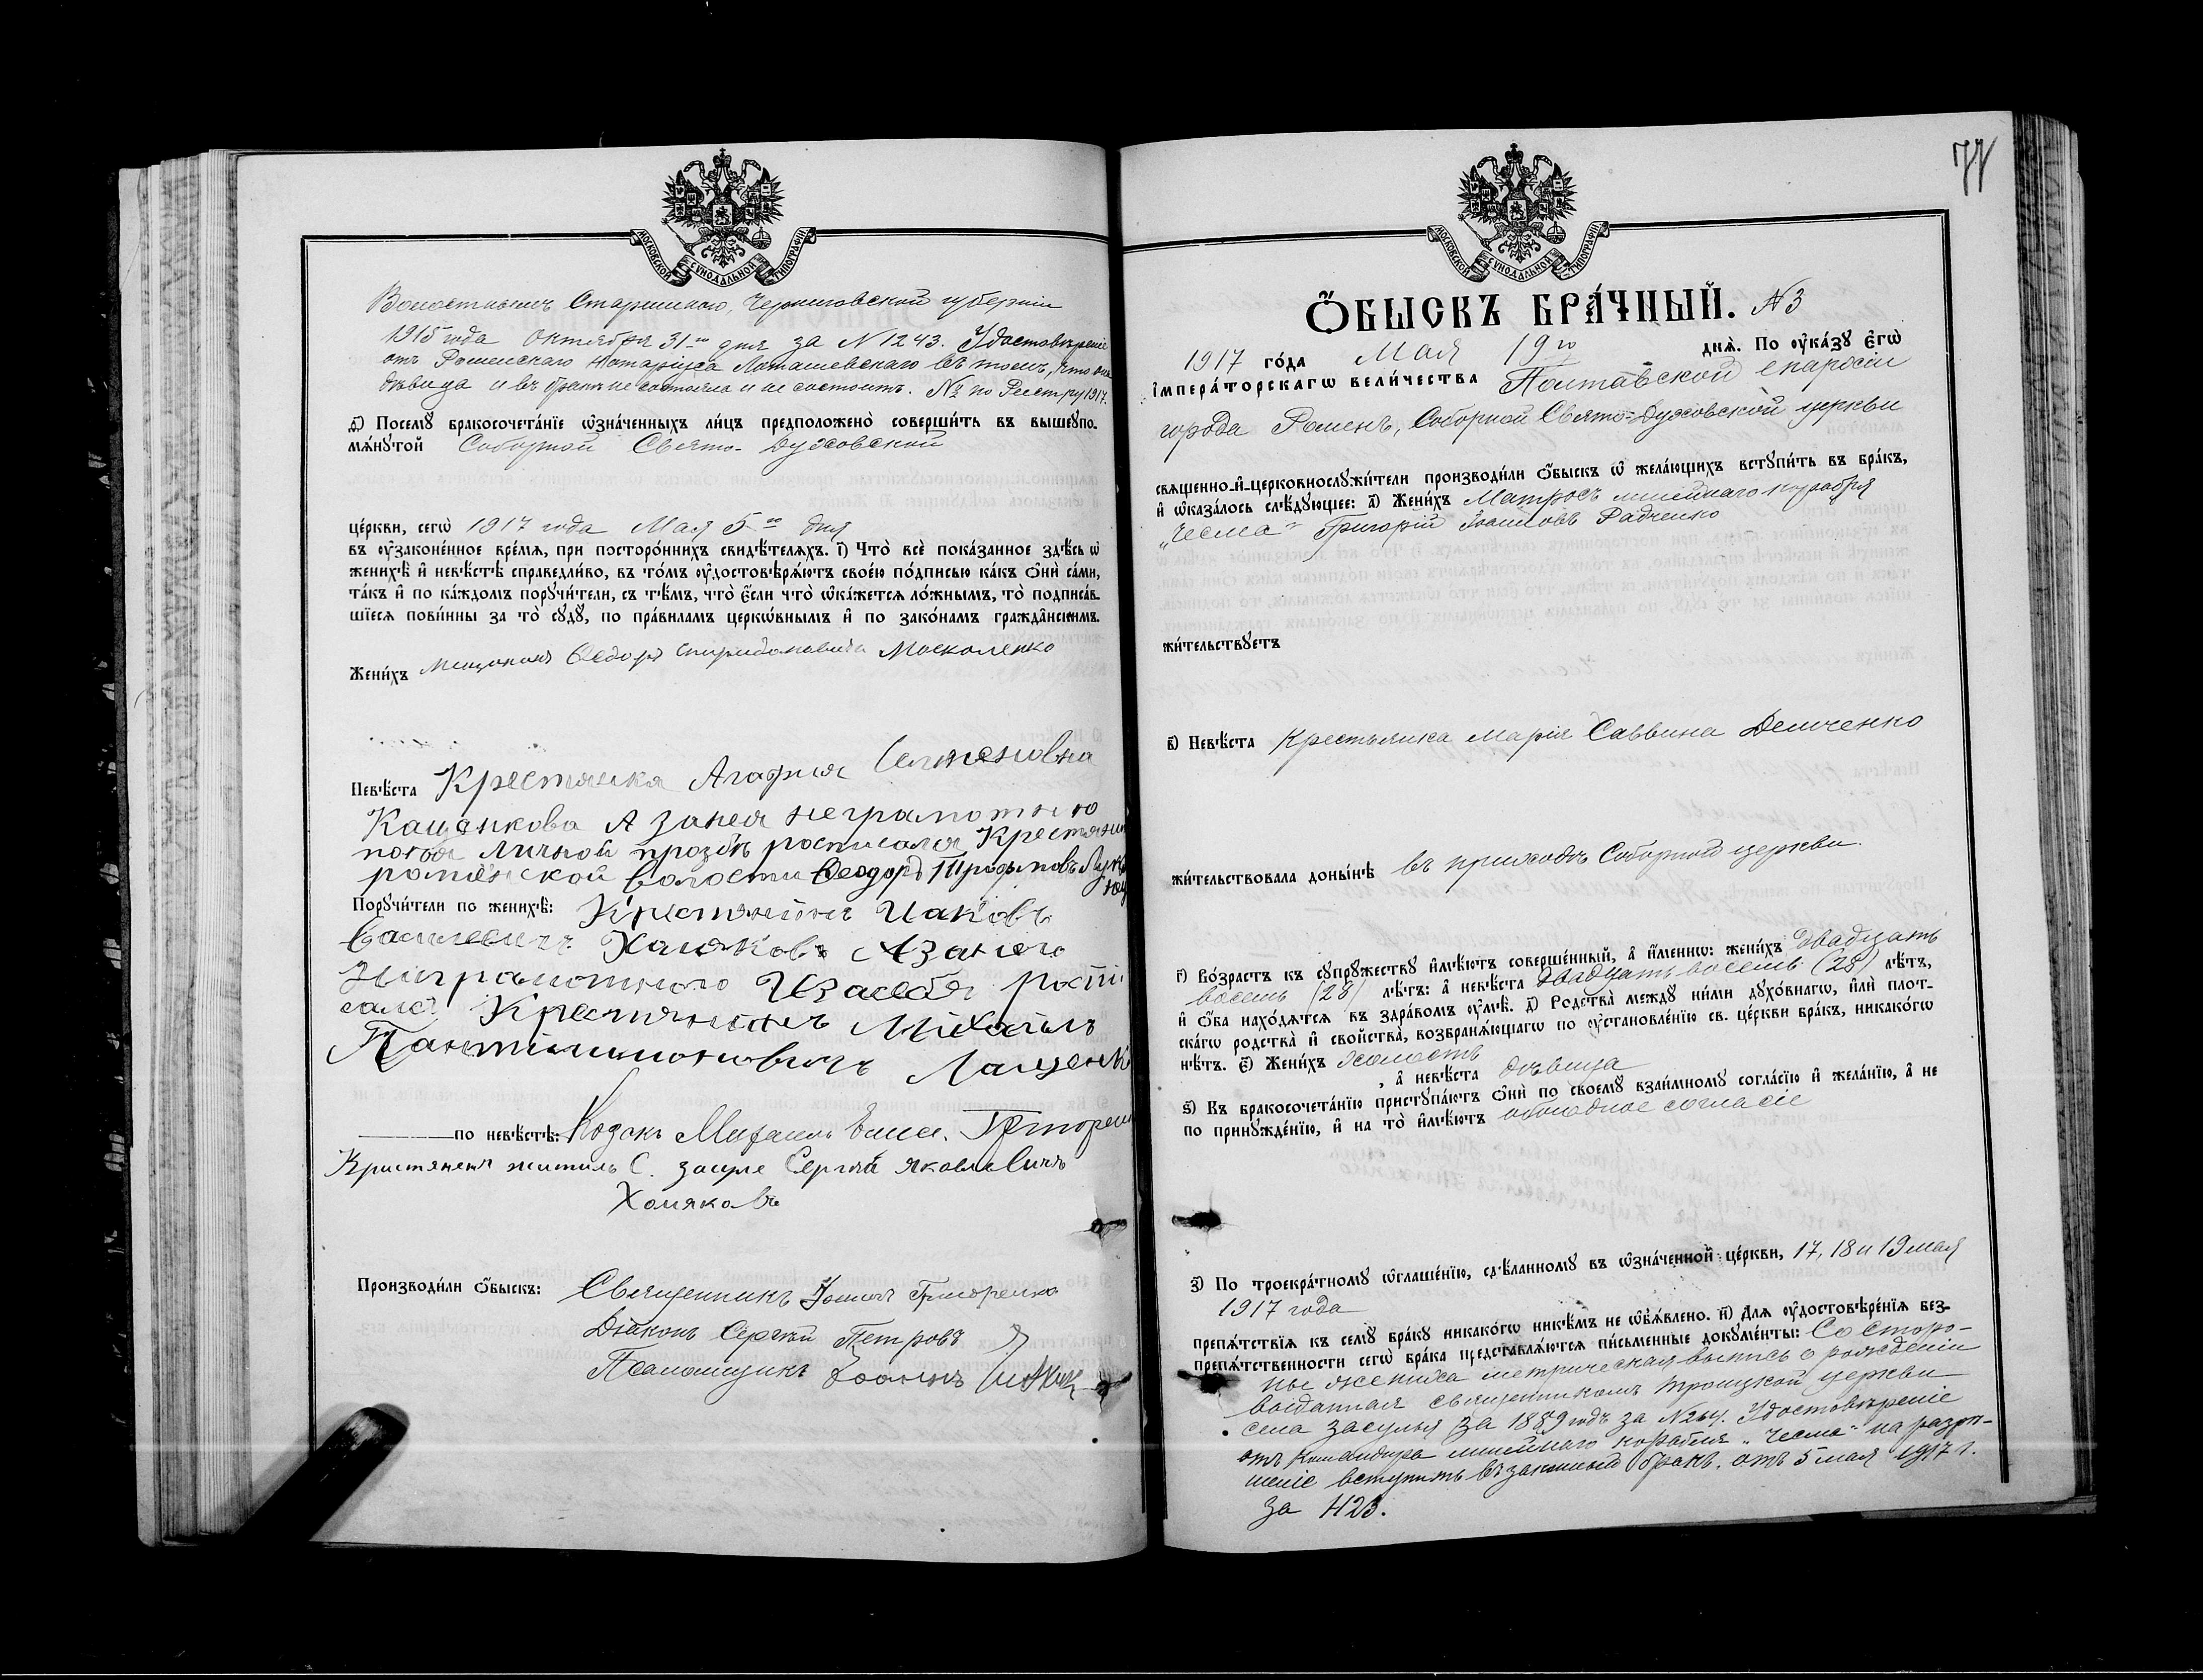 МОСКОВСКОЙ СѴНОДАЛЬНОЙ ТИПОГРАФІИ
Волостнымъ Старшиною, Черниговской губерніи
1915 года Октября 31-го дня за N 1243. Удостовѣреніе
отъ Роменскаго Нотаріуса Лоташевскаго въ томъ, что она
дѣвица и въ бракѣ не состояла и не состоитъ. № по Реестру 1917.
ѳ҃) Посемꙋ бракосочета́нїе ѡ҆зна́ченныхъ ли́цъ предположено̀ соверши́ть въ вышеупо-
мѧ́нꙋтой Соборной Свято-Духовской
це́ркви, сегѡ̀ 1917 года Мая 5го дня
въ ᲂу҆зако́ненное вре́мѧ, при посторо́ннихъ свидѣ́телѧхъ. і҃) Что̀ всѐ пока́занное здѣ́сь ѡ҆
женихѣ̀ и҆ невѣ́стѣ справедли́во, въ то́мъ ᲂу҆достовѣрѧ́ютъ свое́ю по́дписью ка́къ ѻ҆нѝ са́ми,
та́къ и҆ по ка́ждомъ порꙋчи́тели, съ тѣ́мъ, что̀ є҆́сли что̀ ѡ҆ка́жетсѧ ло́жнымъ, то̀ подписа́в-
шїесѧ пови́нны за то̀ сꙋдꙋ̀, по пра́виламъ церкѡ́внымъ и҆ по зако́намъ гражда̑нскимъ.
Жени́хъ мещанинъ Ѳедоръ Спиридоновичъ Москаленко
Невѣ́ста Крестянка Агафия Семеновна
Кащенкова А занея неграмотною
поея личной прозбѣ росписался Крестянин
роменской волости Ѳеодоръ Трофимовъ
Порꙋчи́тели по женихѣ̀: Крестянинъ Иаковъ
Василевичъ Хомяковъ Азанего
Ниграмотного Изасебя роспи
салс Крестянинъ Михаилъ
Пантилимоновичъ Лащенк
по невѣ́стѣ: Козакъ Михаилъ Григорен
Кристяненъ житиль С. засуле Сергѣй Яковлевичъ
Хомяковъ
Производи́ли ѻ҆́быскъ: Священникъ Іоаннъ Григоренко
Діаконъ Сергѣй Петровъ
Псаломщикъ Іоаннъ
77
МОСКОВСКОЙ СѴНОДАЛЬНОЙ ТИПОГРАФІИ
Ѻ҆́БЫСКЪ БРА́ЧНЫЙ. N 3
1917 го́да Мая 19го днѧ̀. По ᲂу҆ка́зꙋ є҆гѡ̀
і҆мпера́торскагѡ вели́чества Полтавской епархіи
города Роменъ, Соборной Свято-Духовской церкви
свѧще́нно-и҆-церковнослꙋжи́тели производи́ли ѻ҆́быскъ ѡ҆ жела́ющихъ встꙋпи́ть въ бра́къ,
и҆ ѡ҆каза́лось слѣ́дꙋющее: а҃) Жени́хъ Матросъ линейнаго корабля
„Чесма“ Григорій Іоанновъ Радченко
жи́тельствꙋетъ
в҃) Невѣ́ста Крестьянка Марія Саввина Демченко
жи́тельствовала доны́нѣ въ приходѣ Соборной церкви.
г҃) Во́зрастъ къ сꙋпрꙋ́жествꙋ и҆мѣ́ютъ соверше́нный, а҆ и҆́менно: жени́хъ двадцать
восемь (28) лѣ́тъ: а҆ невѣ́ста двадцать восемь (28) лѣ́тъ,
и҆ ѻ҆́ба нахо́дѧтсѧ въ здра́вомъ ᲂу҆мѣ̀. д҃) Родства̀ ме́ждꙋ ни́ми дꙋхо́внагѡ, и҆лѝ пло́т-
ска́гѡ родства̀ и҆ сво́йства, возбранѧ́ющагѡ по ᲂу҆становле́нїю св. це́ркви бра́къ, никако́гѡ
нѣ́тъ. є҃) Жени́хъ холостъ
, а҆ невѣ́ста дѣвица
ѕ҃) Къ бракосочета́нїю пристꙋпа́ютъ ѻ҆нѝ по своемꙋ̀ взаи́мномꙋ согла́сїю и҆ жела́нїю, а҆ не
по принꙋжде́нїю, и҆ на то̀ и҆мѣ́ютъ обоюдное согласіе
з҃) По троекра́тномꙋ ѡ҆глаше́нїю, сдѣ́ланномꙋ въ ѡ҆зна́ченной це́ркви, 17, 18 и 19 мая
1917 года
препѧ́тствїѧ къ семꙋ̀ бра́кꙋ никако́гѡ никѣ́мъ не ѡ҆б̾ѧ́влено. и҃) Длѧ ᲂу҆достовѣ́ренїѧ без-
препѧ́тственности сегѡ̀ бра́ка представлѧ́ютсѧ пи́сьменные докꙋме́нты: Со сторо-
ны жениха метрическая выпись о рожденіи
выданная священникомъ Троицкой церкви
села Засулья за 1889 годъ за N 264. Удостовѣреніе
отъ Командира линейнаго корабля „Чесма“ на разрѣ-
шеніе вступить въ законный бракъ. отъ 5 мая 1917 г.
за 423.